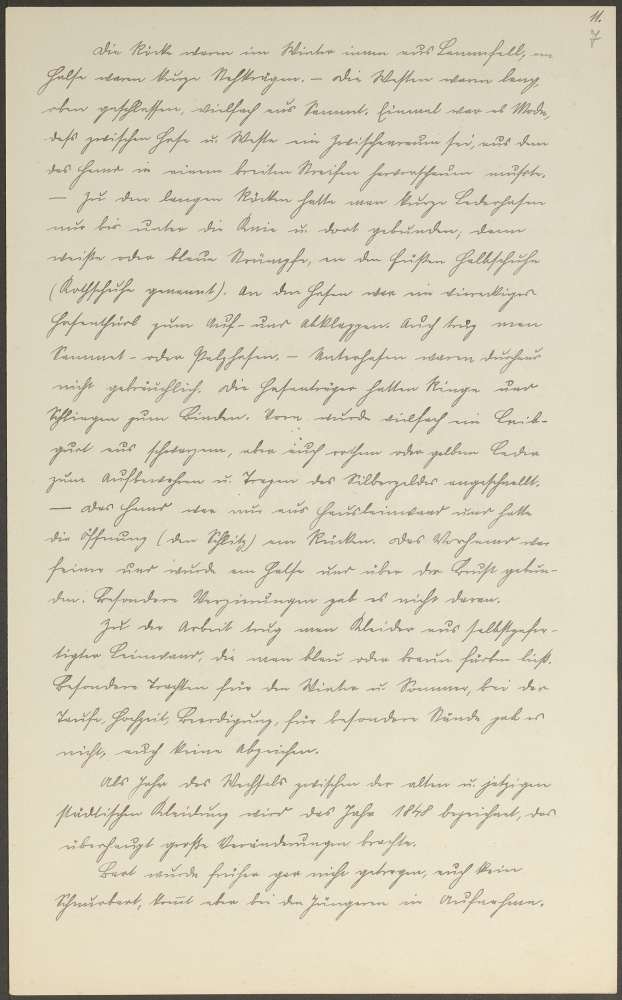 11.
7
Die Röcke waren im Winter innen aus Lammfell, am
Halse waren kurze Stehkrägen. – Die Westen waren lang,
oben geschlossen, vielfach aus Sammt. Einmal war es Mode,
dass zwischen Hose u. Weste ein Zwischenraum sei, aus dem
das Hemd in einem breiten Streifen hervorschauen musste.
— Zu den langen Röcken hatte man kurze Lederhosen
nur bis unter die Knie u. dort gebunden, dann
weiße oder blaue Strümpfe, an den Füßen Halbschuhe
(Kothschuhe genannt). An den Hosen war ein viereckiges
Hosenthürl zum Auf- und Abklappen. Auch trug man
Sammet- oder Pelzhosen. – Unterhosen waren durchaus
nicht gebräuchlich. Die Hosenträger hatten Ringe und
Schlingen zum Binden. Vorn wurde vielfach ein Leib-
gurt aus schwarzem, aber auch rothem oder gelbem Leder
zum Aufbewahren u. Tragen des Silbergeldes angeschnallt.
— Das Hemd war nur aus Hausleinwand und hatte
die Öffnung (den Schlitz) am Rücken. Das Vorhemd war
feiner und wurde am Halse und über der Brust gebun-
den. Besondere Verzierungen gab es nicht daran.
Zu der Arbeit trug man Kleider aus selbstgefer-
tigter Leinwand, die man blau oder braun färben ließ.
Besondere Trachten für den Winter u. Sommer, bei der
Taufe, Hochzeit, Beerdigung, für besondere Stände gab es
nicht, auch keine Abzeichen.
Als Jahr des Wechsels zwischen der alten u. jetzigen
städtischen Kleidung wird das Jahr 1848 bezeichnet, das
überhaupt große Veränderungen brachte.
Bart wurde früher gar nicht getragen, auch kein
Schnurbart, kom̄t aber bei den Jüngeren in Aufnahme.